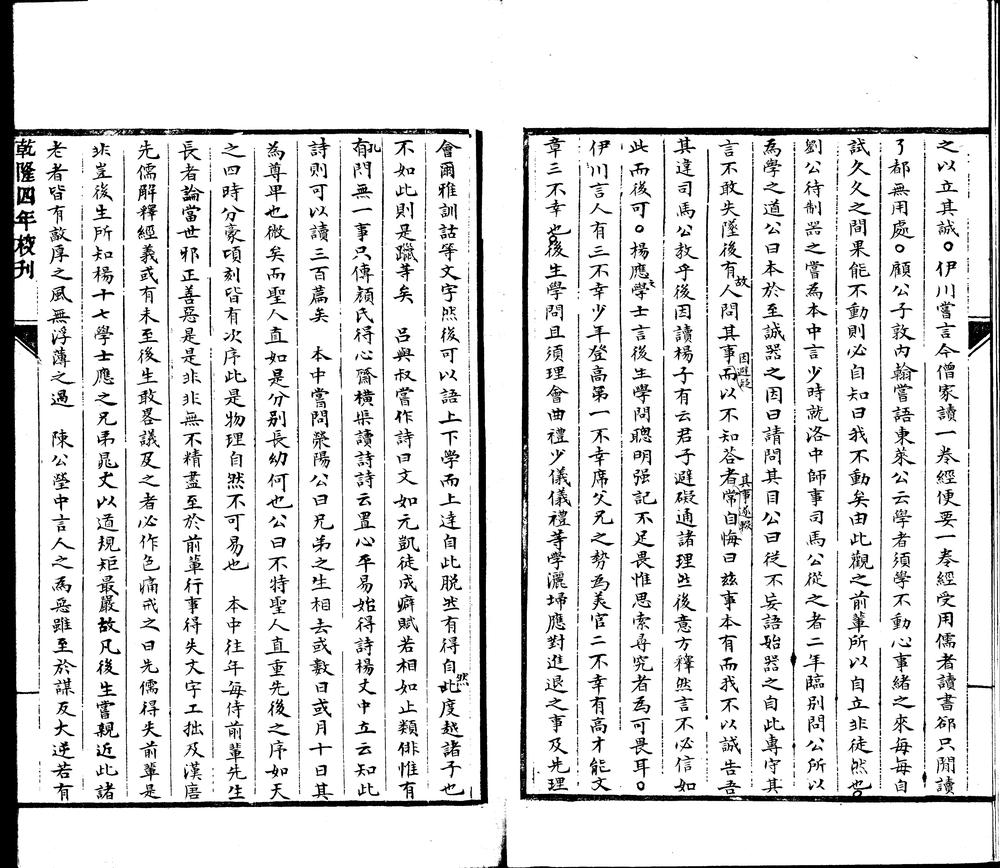 之以立其誠。伊川嘗言今僧家讀一卷經便要一卷經受用儒者讀書卻只閒讀
了都無用處。顧公子敦內翰嘗語東萊公云學者須學不動心事緒之來每每自
試久久之間果能不動則必自知曰我不動矣由此觀之前輩所以自立非徒然也。
劉公待制器之嘗為本中言少時就洛中師事司馬公從之者二年臨別問公所以
為學之道公曰本於至誠器之因曰請問其目公曰從不妄語始器之自此專守其
言不敢失墜後有人問其事而以不知荅者常自悔曰兹事本有而我不以誠告吾
故
因避疑
其事遂輟
其違司馬公教乎後因讀楊子有云君子避礙通諸理然後意方釋然言不必信如
此而後可。楊應學士言後生學問聰明强記不足畏惟思索尋究者為可畏耳。
之
伊川言人有三不幸少年登高第一不幸席父兄之勢為美官二不幸有高才能文
章三不幸也。後生學問且須理會曲禮少儀儀禮等學灑埽應對進退之事及先理
會爾雅訓詁等文字然後可以語上下學而上達自此脫然有得自此度越諸子也
然
不如此則是躐等矣 呂與叔嘗作詩曰文如元凱徒成癖賦若相如止類俳惟有
孔
有問無一事只傳顏氏得心齋橫渠讀詩詩云置心平易始得詩楊丈中立云知此
詩則可以讀三百篇矣 本中嘗問滎陽公曰兄弟之生相去或數日或月十日其
為尊卑也微矣而聖人直如是分別長幼何也公曰不特聖人直重先後之序如天
之四時分豪頃刻皆有次序此是物理自然不可易也 本中往年每侍前輩先生
長者論當世邪正善惡是是非非無不精盡至於前輩行事得失文字工拙及漢唐
先儒解釋經義或有未至後生敢畧議及之者必作色痛戒之曰先儒得失前輩是
非豈後生所知楊十七學士應之兄弟晁丈以道規矩最嚴故凡後生嘗親近此諸
老者皆有敦厚之風無浮薄之過 陳公瑩中言人之為惡雖至於謀反大逆若有
乾隆四年校刊